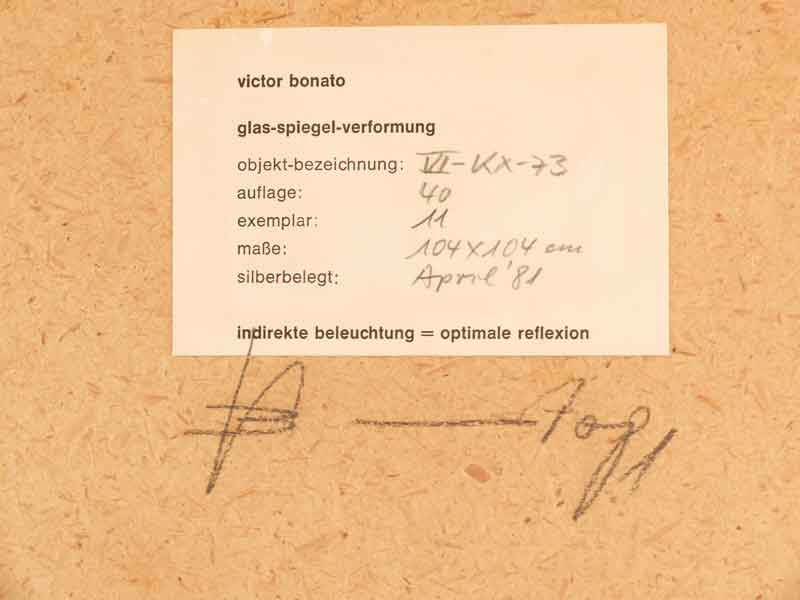 victor bonato
glas-spiegel-verformung
objekt-bezeichnung: VI-KX-73
auflage: 40
exemplar: 11
maße: 104x104 cm
silberbelegt: April '81
indirekte beleuchtung = optimale reflexion